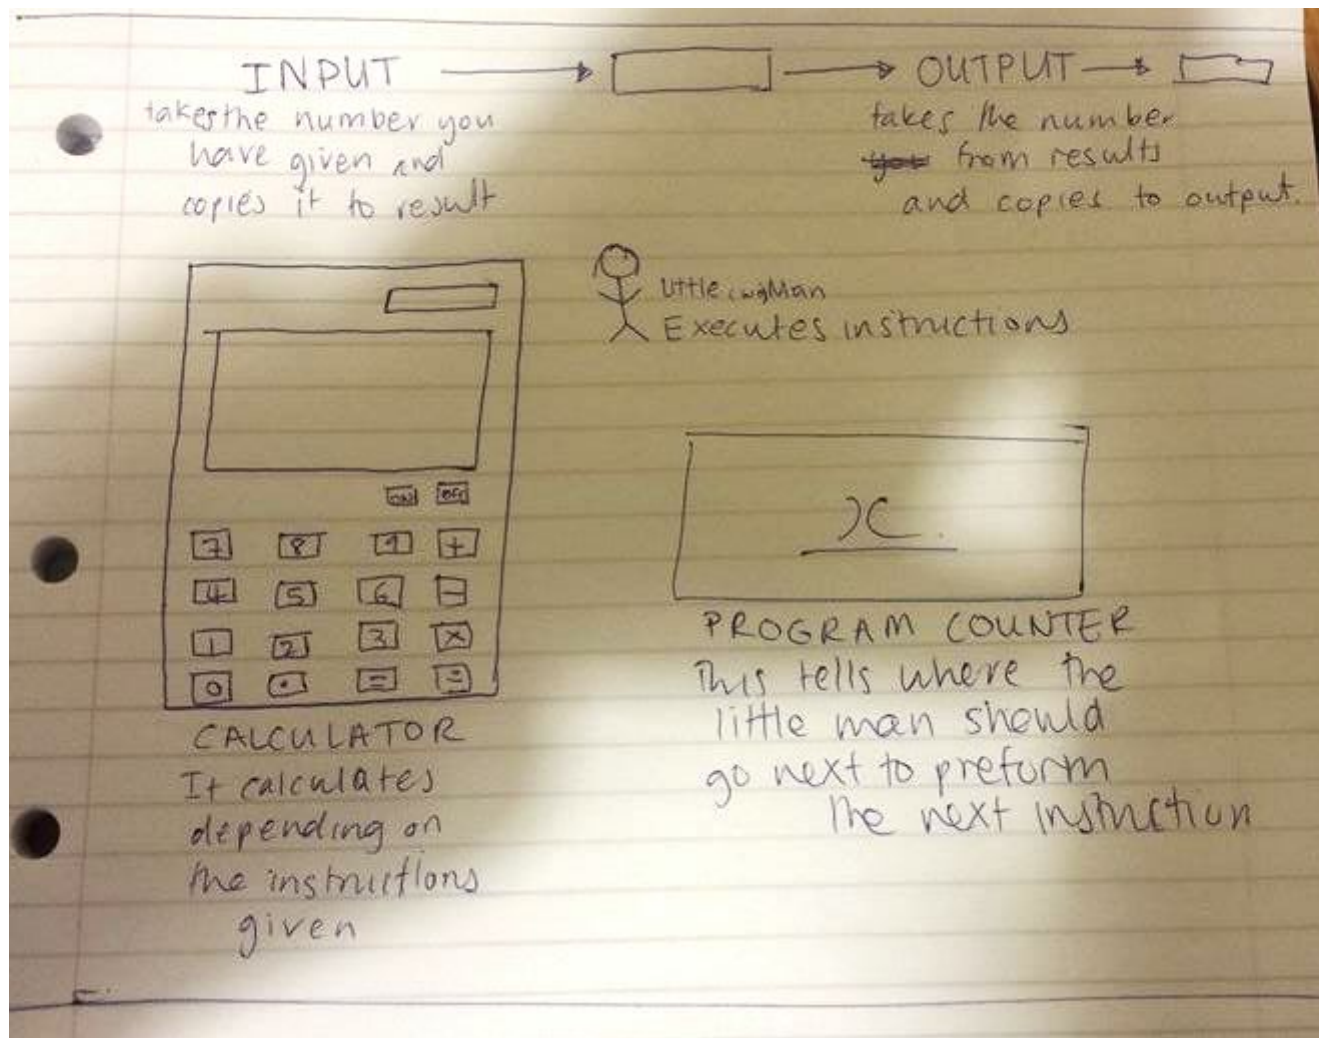 INPUT → → OUTPUT →
takes the number you
have given and
copies it to result
takes the number
from results
and copies to output.
Little Man
Executes instructions
ON OFF
7 8 9 +
4 5 6 -
1 2 3 x
0 . = ÷
x
CALCULATOR
It calculates
depending on
the instructions
given
PROGRAM COUNTER
This tells where the
little man should
go next to preform
the next instruction